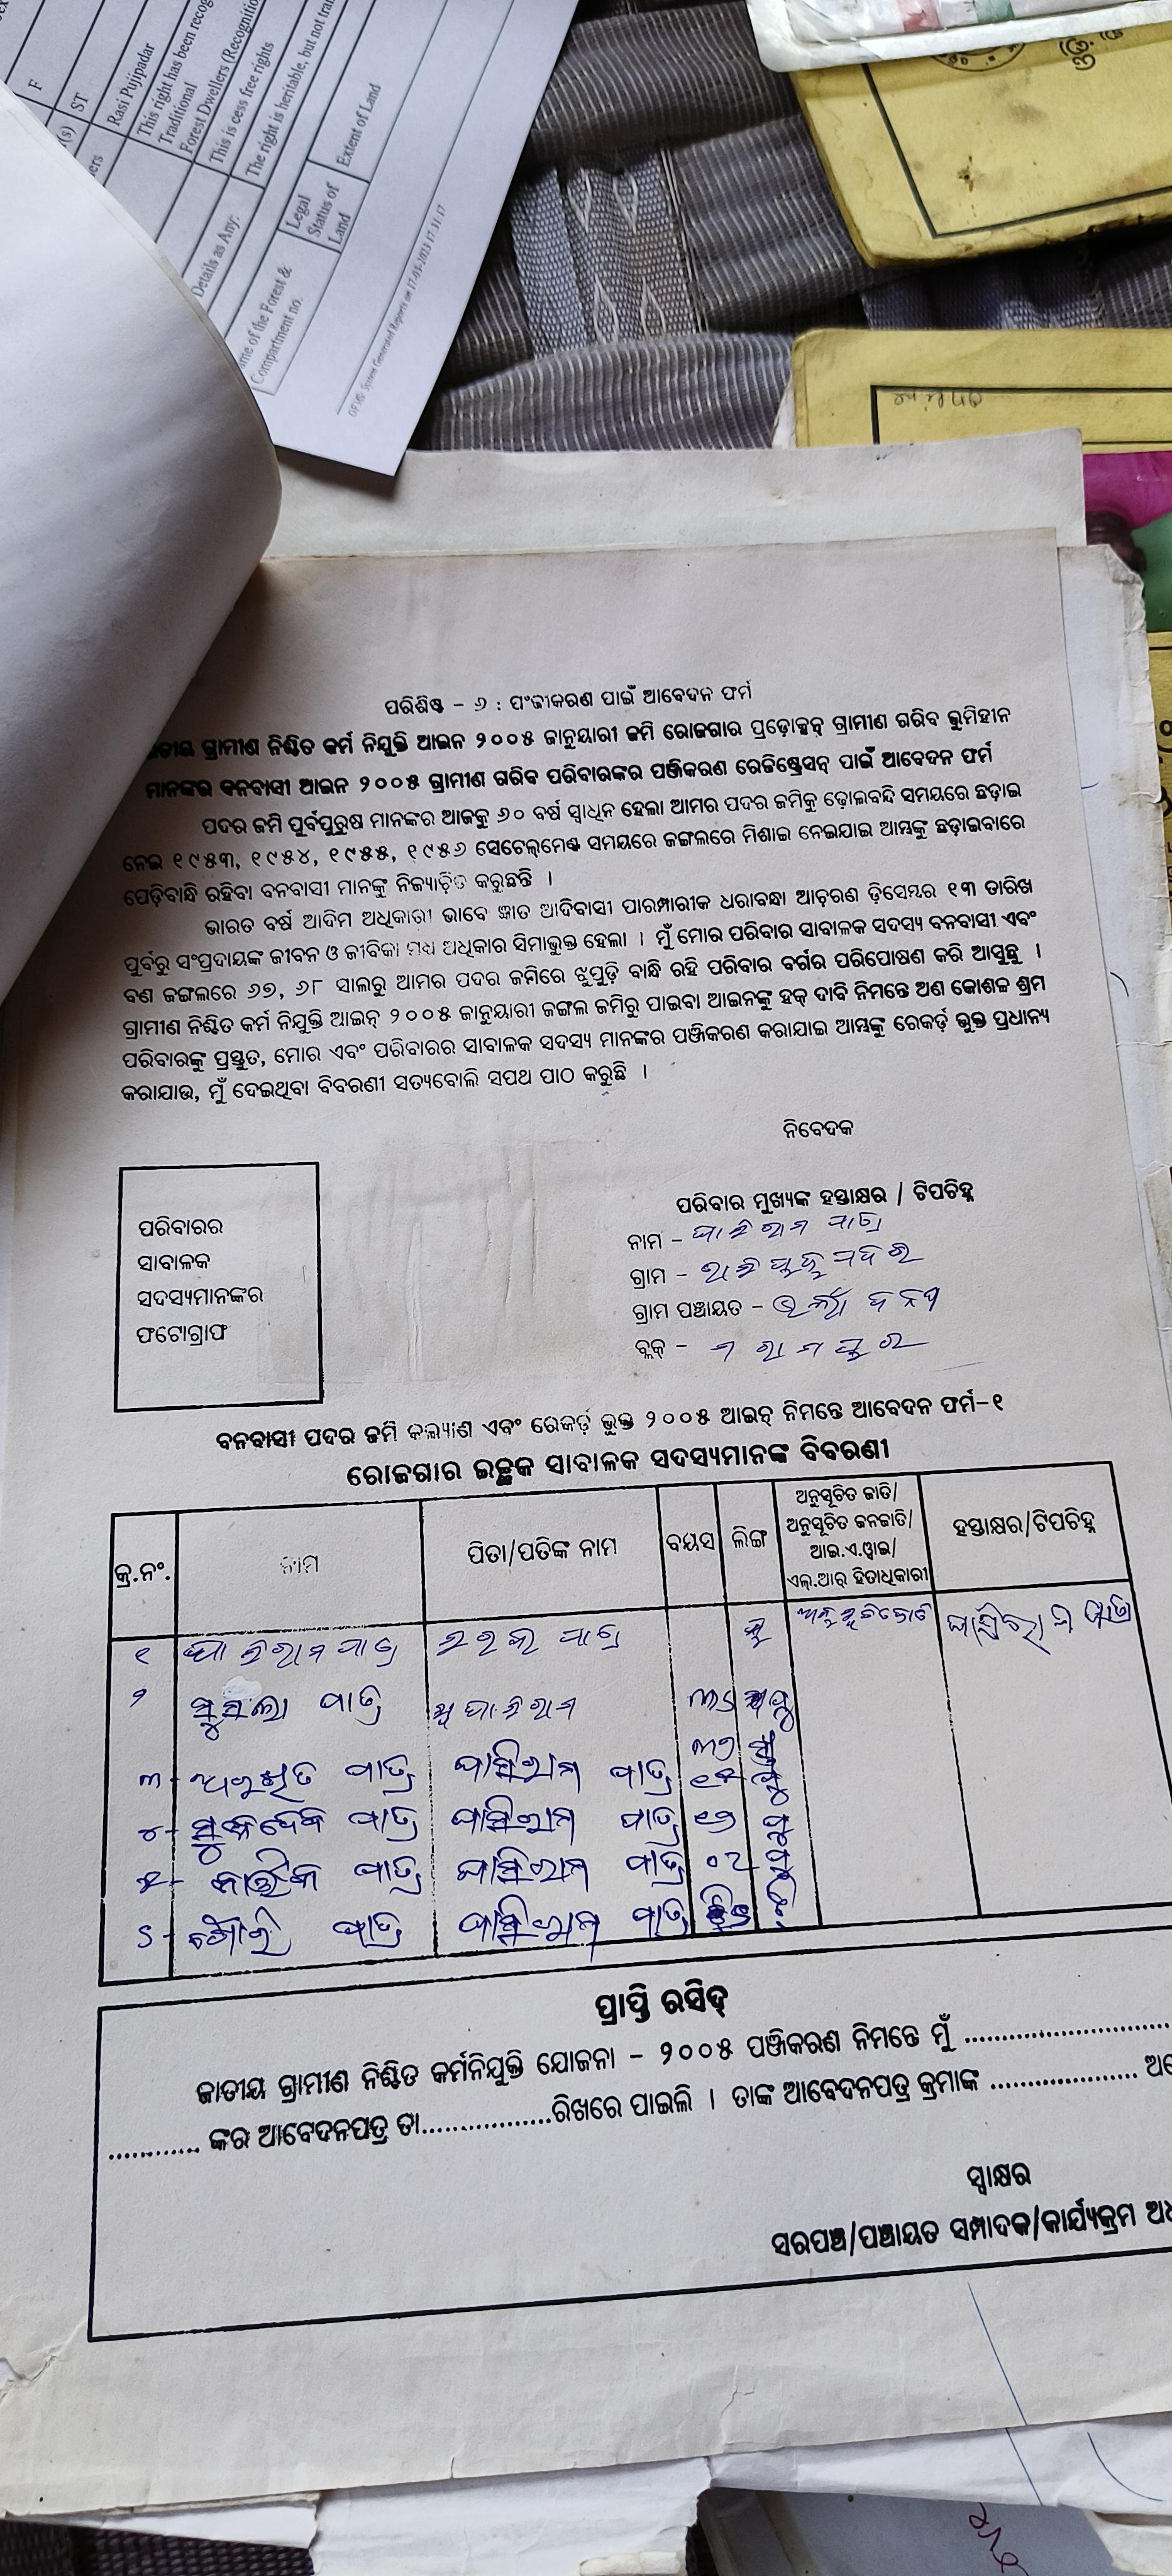 F
(s) ST
Rasi Pujipadar
This right has been recog
Traditional
Forest Dwellers (Recognitio
This is cess free rights
Details as Any:
The right is heritable, but not tra
ame of the Forest &
Compartment no.
Legal
Status of
Land
Extent of Land
OFMS System Generated Reports on
ପରିଶିଷ୍ଟ - ୬ : ପଂଜୀକରଣ ପାଇଁ ଆବେଦନ ଫର୍ମ
ଜାତୀୟ ଗ୍ରାମୀଣ ନିଶ୍ଚିତ କର୍ମ ନିଯୁକ୍ତି ଆଇନ ୨୦୦୫ ଜାନୁୟାରୀ ଜମି ରୋଜଗାର ପ୍ରଡ଼ୋକ୍ସନ୍ ଗ୍ରାମୀଣ ଗରିବ ଭୁମିହୀନ
ମାନଙ୍କର ବନବାସୀ ଆଇନ ୨୦୦୫ ଗ୍ରାମୀଣ ଗରିବ ପରିବାରଙ୍କର ପଞ୍ଜିକରଣ ରେଜିଷ୍ଟ୍ରେସନ୍ ପାଇଁ ଆବେଦନ ଫର୍ମ
ପଦର ଜମି ପୂର୍ବପୁରୁଷ ମାନଙ୍କର ଆଜକୁ ୬୦ ବର୍ଷ ସ୍ୱାଧିନ ହେଲା ଆମର ପଦର ଜମିକୁ ଢ଼ୋଲବନ୍ଦି ସମୟରେ ଛଡ଼ାଇ
ନେଇ ୧୯୫୩, ୧୯୫୪, ୧୯୫୫, ୧୯୫୬ ସେଟେଲ୍‌ମେଣ୍ଟ ସମୟରେ ଜଙ୍ଗଲରେ ମିଶାଇ ନେଇଯାଇ ଆମ୍ଭଙ୍କୁ ଛଡ଼ାଇବାରେ
ପେଡ଼ିବାନ୍ଧି ରହିବା ବନବାସୀ ମାନଙ୍କୁ ନିଜ୍ୟାଡ଼ିତ କରୁଛନ୍ତି ।
ଭାରତ ବର୍ଷ ଆଦିମ ଅଧିକାରୀ ଭାବେ ଜ୍ଞାତ ଆଦିବାସୀ ପାରମ୍ପାରୀକ ଧରାବନ୍ଧା ଆଚ଼ରଣ ଡ଼ିସେମ୍ବର ୧୩ ତାରିଖ
ପୁର୍ବରୁ ସଂପ୍ରଦାୟଙ୍କ ଜୀବନ ଓ ଜୀବିକା ମଧ୍ୟ ଅଧିକାର ସିମାଭୁକ୍ତ ହେଲା । ମୁଁ ମୋର ପରିବାର ସାବାଳକ ସଦସ୍ୟ ବନବାସୀ ଏବଂ
ବଣ ଜଙ୍ଗଲରେ ୬୭, ୬୮ ସାଲରୁ ଆମର ପଦର ଜମିରେ ଝୁପୁଡ଼ି ବାନ୍ଧି ରହି ପରିବାର ବର୍ଗର ପରିପୋଷଣ କରି ଆସୁଛୁ ।
ଗ୍ରାମୀଣ ନିଶ୍ଚିତ କର୍ମ ନିଯୁକ୍ତି ଆଇନ୍ ୨୦୦୫ ଜାନୁୟାରୀ ଜଙ୍ଗଲ ଜମିରୁ ପାଇବା ଆଇନଙ୍କୁ ହକ୍ ଦାବି ନିମନ୍ତେ ଅଣ କୋଶଳ ଶ୍ରମ
ପରିବାରଙ୍କୁ ପ୍ରସ୍ତୁତ, ମୋର ଏବଂ ପରିବାରର ସାବାଳକ ସଦସ୍ୟ ମାନଙ୍କର ପଞ୍ଜିକରଣ କରାଯାଇ ଆମ୍ଭଙ୍କୁ ରେକର୍ଡ଼ ଭୁକ୍ତ ପ୍ରଧାନ୍ୟ
କରାଯାଉ, ମୁଁ ଦେଇଥିବା ବିବରଣୀ ସତ୍ୟବୋଲି ସପଥ ପାଠ କରୁଛି ।
ନିବେଦକ
ପରିବାର ମୁଖ୍ୟଙ୍କ ହସ୍ତାକ୍ଷର / ଟିପଚିହ୍ନ
ନାମ - ଘାସିରାମ ପାତ୍ର
ଗ୍ରାମ -
ଗ୍ରାମ ପଞ୍ଚାୟତ -
ବ୍ଲକ୍ -
ପରିବାରର
ସାବାଳକ
ସଦସ୍ୟମାନଙ୍କର
ଫଟୋଗ୍ରାଫ
ବନବାସୀ ପଦର ଜମି କଲ୍ୟାଣ ଏବଂ ରେକର୍ଡ଼ ଭୁକ୍ତ ୨୦୦୫ ଆଇନ୍ ନିମନ୍ତେ ଆବେଦନ ଫର୍ମ-୧
ରୋଜଗାର ଇଚ୍ଛୁକ ସାବାଳକ ସଦସ୍ୟମାନଙ୍କ ବିବରଣୀ
କ୍ର.ନଂ. ନାମ ପିତା/ପତିଙ୍କ ନାମ ବୟସ ଲିଙ୍ଗ ଅନୁସୂଚିତ ଜାତି/ ଅନୁସୂଚିତ ଜନଜାତି/ ଆଇ.ଏ.ୱାଇ/ ଏଲ୍.ଆର୍ ହିତାଧିକାରୀ ହସ୍ତାକ୍ଷର/ଟିପଚିହ୍ନ
୧ ଘାସିରାମ ପାତ୍ର ପାତ୍ର ପୁ
୨ ପାତ୍ର ଘାସିରାମ ୩୬
୩ ପାତ୍ର ଘାସିରାମ ପାତ୍ର ପୁ
୪ ସୁକଦେବ ପାତ୍ର ଘାସିରାମ ପାତ୍ର ପୁ
୫ କାର୍ତ୍ତିକ ପାତ୍ର ଘାସିରାମ ପାତ୍ର ପୁ
୬ ଗୌରୀ ପାତ୍ର ଘାସିରାମ ପାତ୍ର
ପ୍ରାପ୍ତି ରସିଦ୍
ଜାତୀୟ ଗ୍ରାମୀଣ ନିଶ୍ଚିତ କର୍ମନିଯୁକ୍ତି ଯୋଜନା - ୨୦୦୫ ପଞ୍ଜିକରଣ ନିମନ୍ତେ ମୁଁ ............................
............ ଙ୍କର ଆବେଦନପତ୍ର ତା.................ରିଖରେ ପାଇଲି । ତାଙ୍କ ଆବେଦନପତ୍ର କ୍ରମାଙ୍କ .................... ଅଟେ
ସ୍ୱାକ୍ଷର
ସରପଞ୍ଚ/ପଞ୍ଚାୟତ ସମ୍ପାଦକ/କାର୍ଯ୍ୟକ୍ରମ ଅଧ